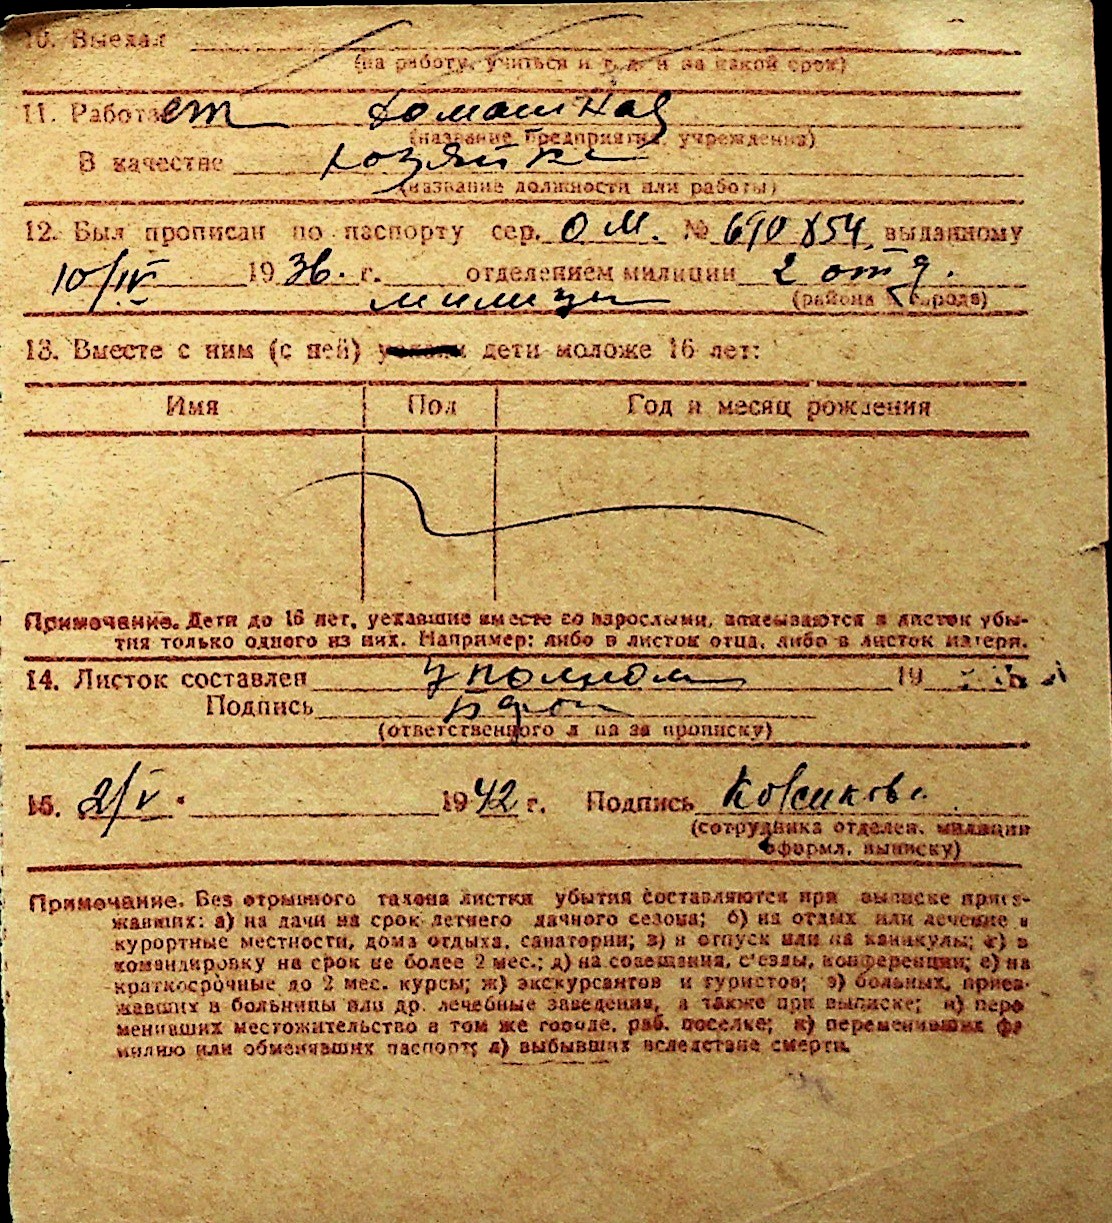 10. Выехал
(на работу, учиться и т. д. и за какой срок)
11. Работает домашная
(название предприятия, учреждения)
В качестве хозяйка
(название должности или работы)
12. Был прописан по паспорту сер. ОМ. № 690854, выданному
10/IV 1936. г. отделением милиции 2 отд.
милиции (района и города)
13. Вместе с ним (с ней) дети моложе 16 лет:
Имя Пол Год и месяц рождения
Примечание. Дети до 16 лет, уехавшие вместе со взрослыми, вписываются в листок убы-
тия только одного из них. Например: либо в листок отца, либо в листок матери.
14. Листок составлен 19
Подпись
(ответственного лица за прописку)
15. 2/V. 1942 г. Подпись
(сотрудника отделен. милиции
оформл. выписку)
Примечание. Без отрывного талона листки убытия составляются при выписке приез-
жавших: а) на дачи на срок летнего дачного сезона; б) на отдых или лечение в
курортные местности, дома отдыха, санатории; в) в отпуск или на каникулы; г) в
командировку на срок не более 2 мес.; д) на совещания, с'езды, конференции; е) на
краткосрочные до 2 мес. курсы; ж) экскурсантов и туристов; з) больных, приез-
жавших в больницы или др. лечебные заведения, а также при выписке; и) пере
менивших местожительство в том же городе, раб. поселке; к) переменивших фа
милию или обменявших паспорт; л) выбывших вследствие смерти.